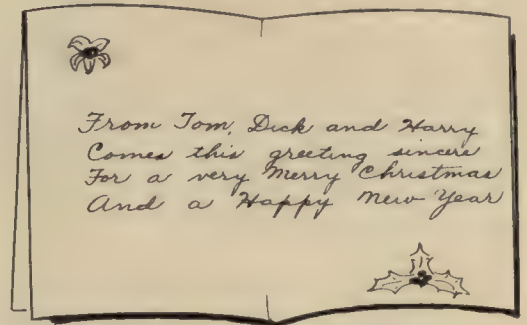 From Tom, Dick and Harry
Comes this greeting sincere
For a very Merry Christmas
And a Happy New Year